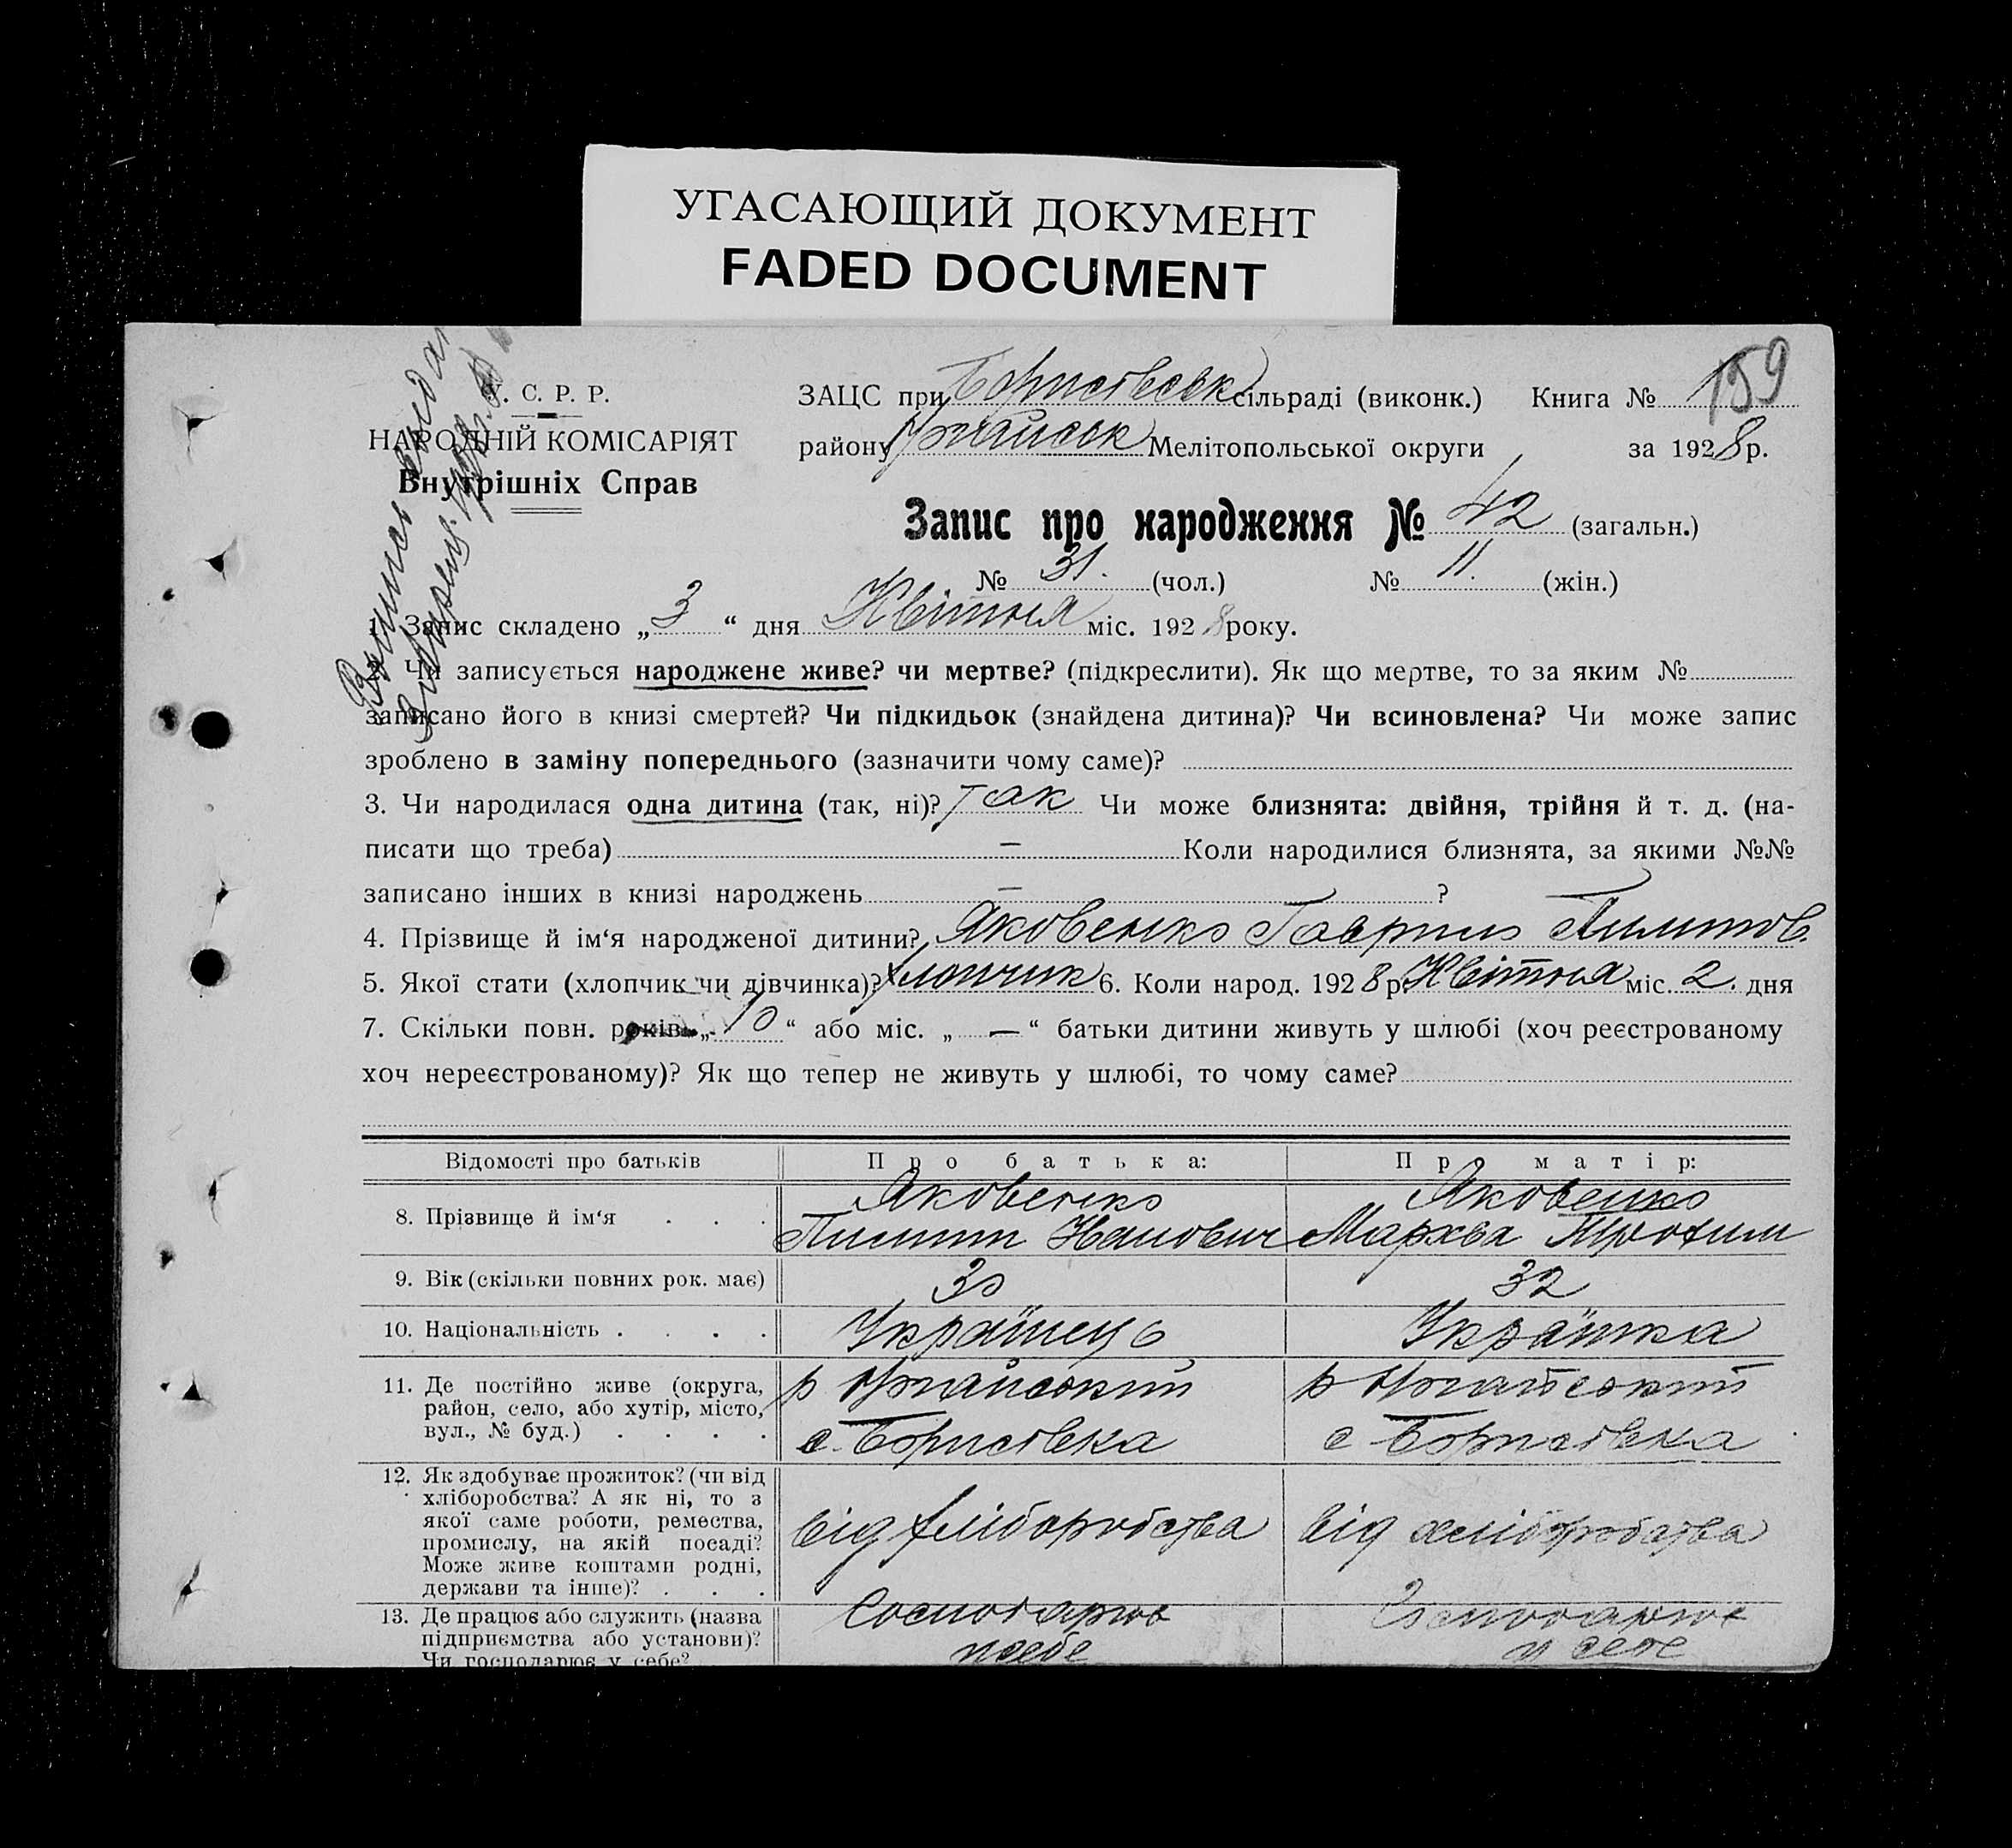 УГАСАЮЩИЙ ДОКУМЕНТ
FADED DOCUMENT
У. С. Р. Р.
НАРОДНІЙ КОМІСАРІЯТ
Внутрішніх Справ
ЗАЦС при Борисівськ сільраді (виконк.) Книга № 159
району Мелітопольської округи за 1928 р.
Запис про народження № 42 (загальн.)
№ 31. (чол.) № 11. (жін.)
1. Запис складено „ 3 “ дня Квітня міс. 1928 року.
Чи записується народжене живе? чи мертве? (підкреслити). Як що мертве, то за яким №
записано його в книзі смертей? Чи підкидьок (знайдена дитина)? Чи всиновлена? Чи може запис
зроблено в заміну попереднього (зазначити чому саме)?
3. Чи народилася одна дитина (так, ні)? так Чи може близнята: двійня, трійня й т. д. (на-
писати що треба) — Коли народилися близнята, за якими №№
записано інших в книзі народжень — ?
4. Прізвище й ім‘я народженої дитини? Яковенко Гаврило Пилипов.
5. Якої стати (хлопчик чи дівчинка)? Хлопчик 6. Коли народ. 1928 р. Квітня міс. 2. дня
7. Скільки повн. років „ 10 “ або міс. „ — “ батьки дитини живуть у шлюбі (хоч реєстрованому
хоч нереєстрованому)? Як що тепер не живуть у шлюбі, то чому саме?
Відомості про батьків Про батька: Про матір:
8. Прізвище й ім‘я Яковенко Яковенко
Пилип Іванович Мархва Трохим
9. Вік (скільки повних рок. має) 30 32
10. Національність Українець Українка
11. Де постійно живе (округа,
район, село, або хутір, місто,
вул., № буд.)
р
с. Борисівка
р
с Борисівка
12. Як здобуває прожиток? (чи від
хліборобства? А як ні, то з
якої саме роботи, ремества,
промислу, на якій посаді?
Може живе коштами родні,
держави та інше)?
від хліборобства від хліборобства
13. Де працює або служить (назва
підприємства або установи)?
Чи господарює у себе?
Господарює
у себе
Господарює
у себе